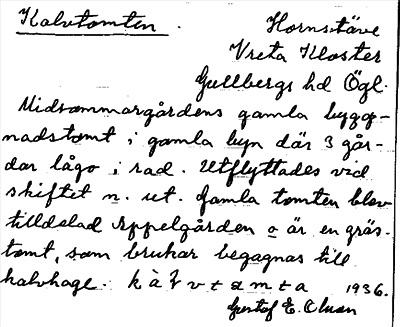 Kalvtomten.
Hornstäve
Vreta Kloster
Gullbergs hd Ögl.
Midsommargårdens gamla bygg-
nadstomt i gamla byn där 3 går-
dar lågo i rad. Utflyttades vid
skiftet n. ut. Gamla tomten blev
tilldelad Eppelgården o är en gräs-
tomt, som brukar begagnas till
kalvhage. k à l v t a m t a 1936.
Gustaf E. Olson